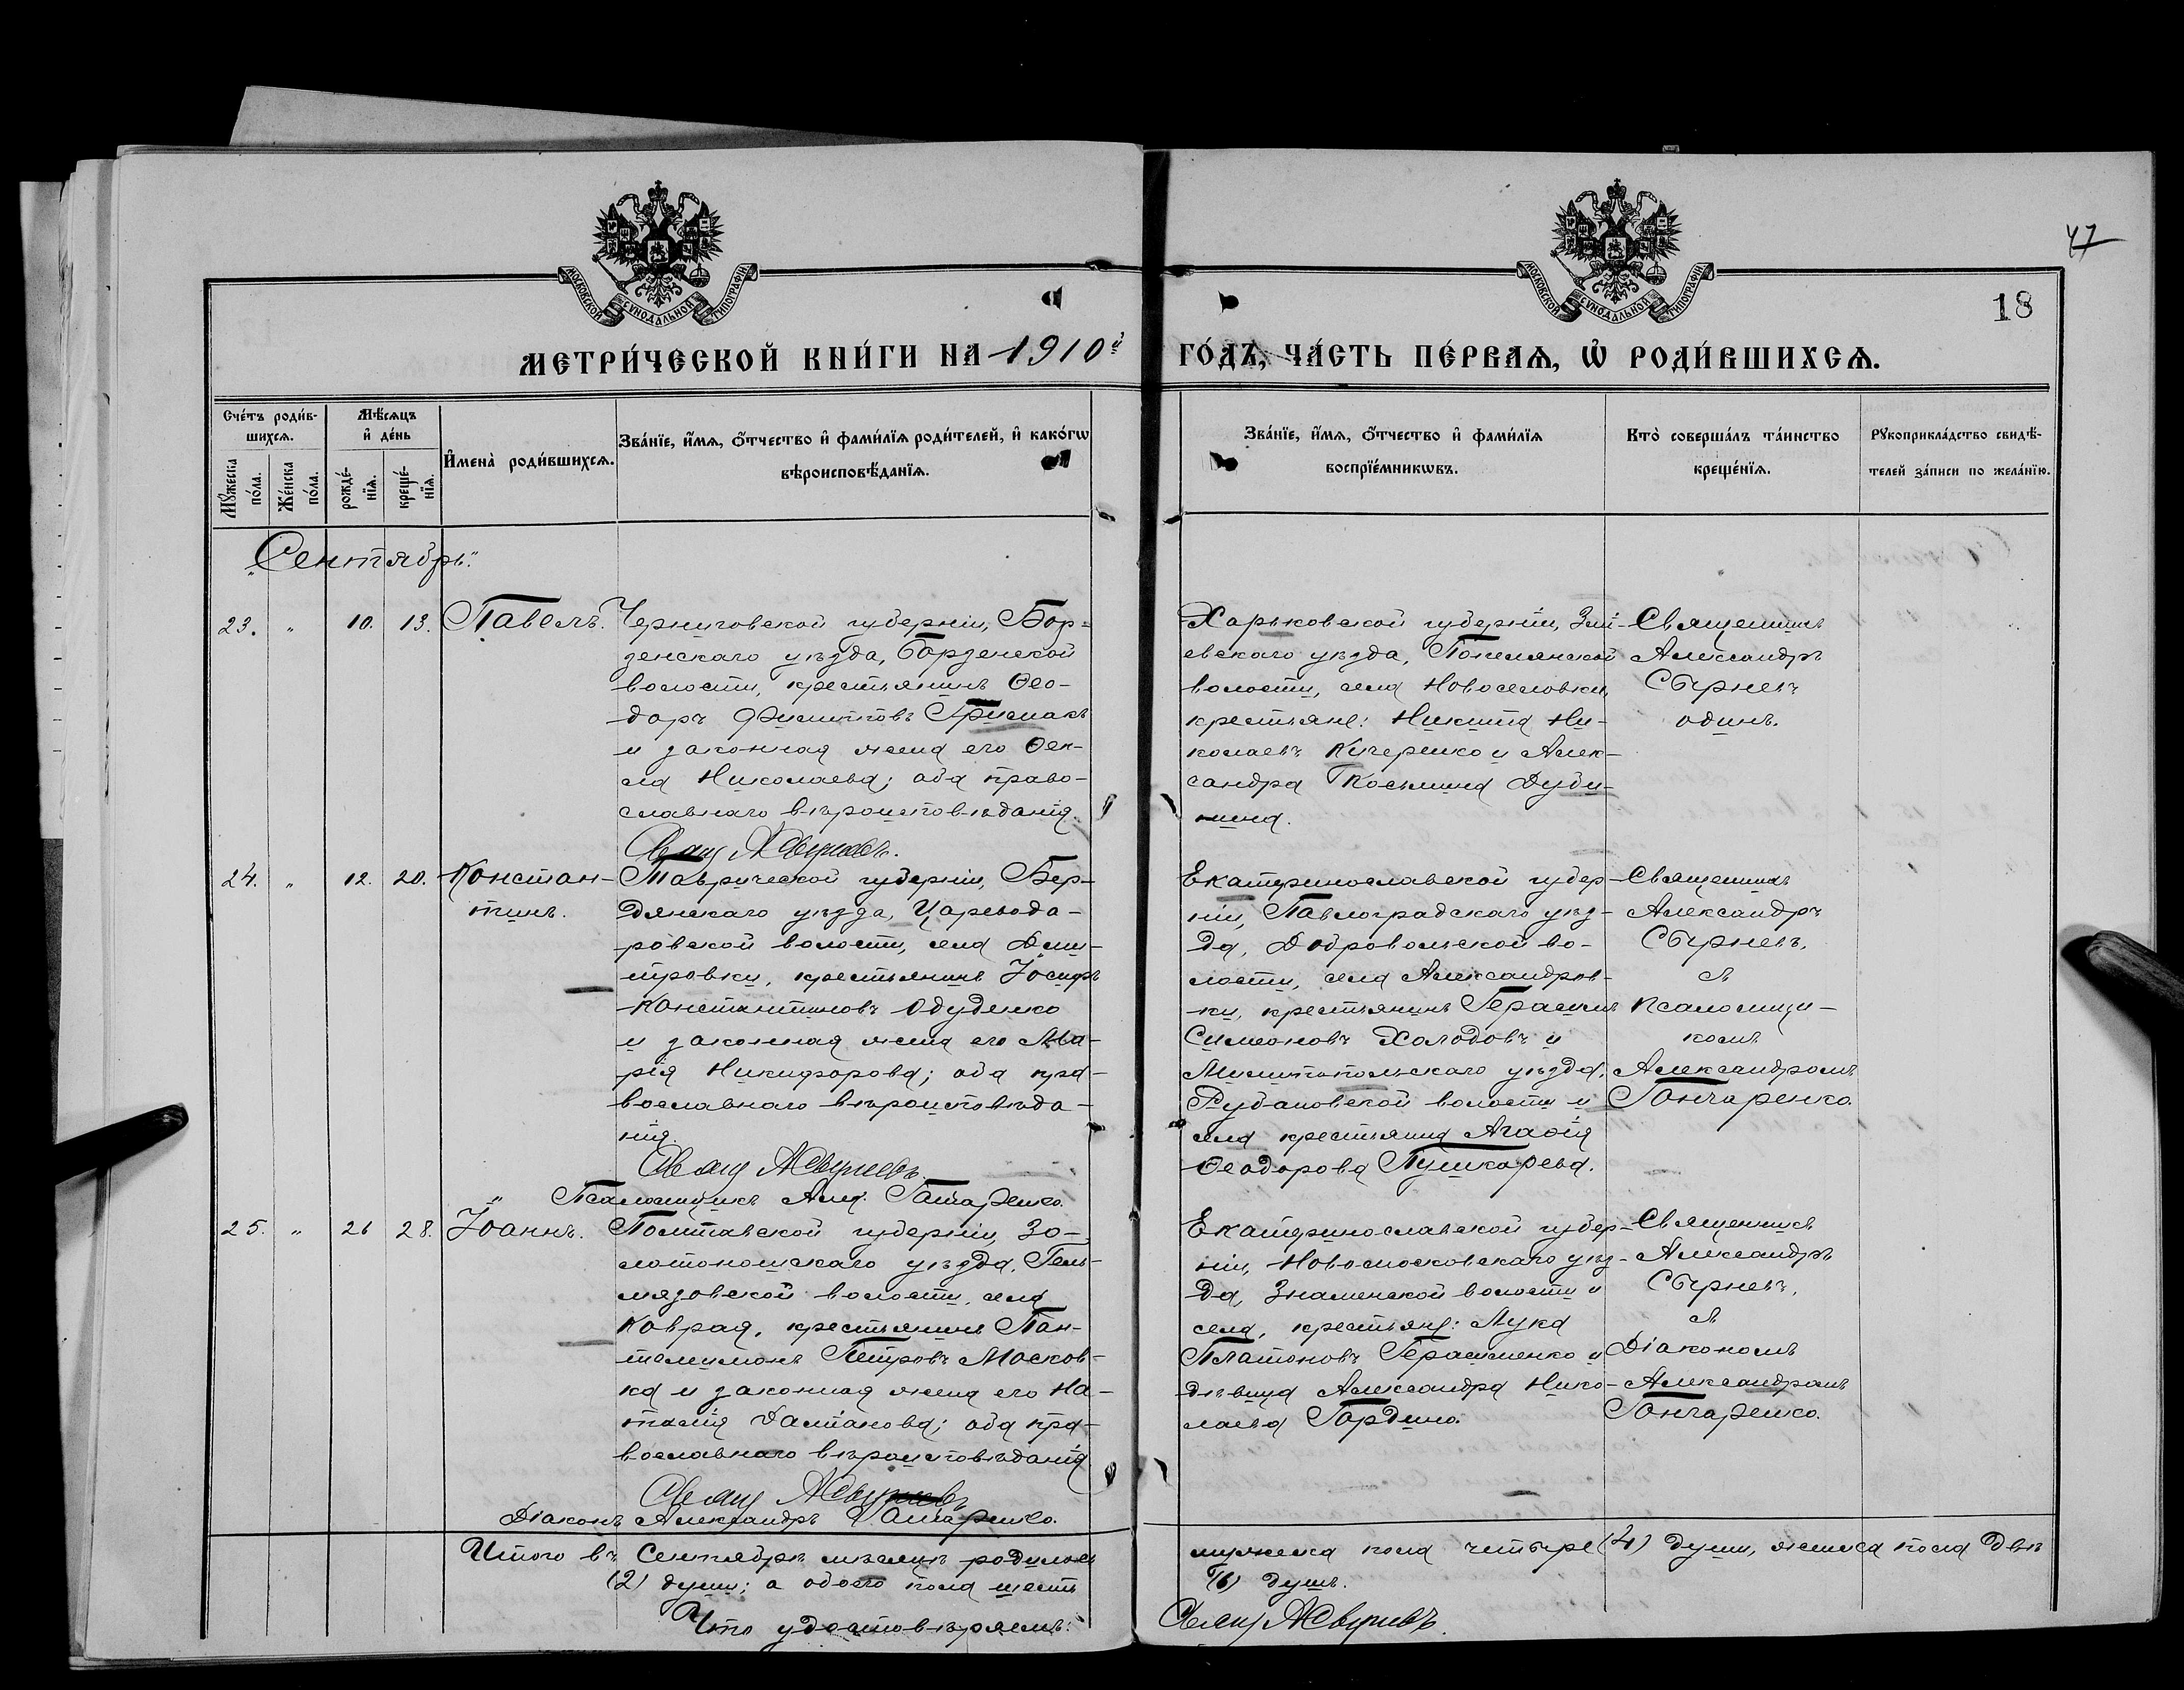 47
18
МОСКОВСКОЙ СУНОДАЛЬНОЙ ТИПОГРАФІИ
МОСКОВСКОЙ СУНОДАЛЬНОЙ ТИПОГРАФІИ
МЕТРИ́ЧЕСКОЙ КНИ́ГИ НА 1910й ГО́ДЪ, ЧА́СТЬ ПЕ́РВАѦ, Ѡ҆ РОДИ́ВШИХСѦ.
Сче́тъ роди́в-
шихсѧ.
Мѣ́сѧцъ
и҆ де́нь
Мꙋ́жеска
по́ла.
Же́нска
по́ла.
рожде́-
нїѧ.
креще́-
нїѧ.
И҆мена̀ роди́вшихсѧ.
Зва́нїе, и҆́мѧ, ѻ҆́тчество и҆ фами́лїѧ роди́телей, и҆ како́гѡ
вѣроисповѣ́данїѧ.
Зва́нїе, и҆́мѧ, ѻ҆́тчество и҆ фами́лїѧ
воспрїе́мникѡвъ.
Кто̀ соверша́лъ та́инство
креще́нїѧ.
Рꙋкоприкла́дство свидѣ́-
телей за́писи по жела́нїю.
„Сентябрь."
23. " 10. 13. Павелъ.
Черниговской губерніи, Бор-
зенскаго уѣзда, Борзенской
волости, крестьянинъ Ѳео-
доръ Филипповъ Гришакъ
и законная жена его Ѳек-
ла Николаева; оба право-
славнаго вѣроисповѣданія.
Свящ А Сырневъ.
Харьковской губерніи, Змі-
евскаго уѣзда,
волости, села Новоселовки,
крестьяне: Никита Ни-
колаевъ Кучеренко и Алек-
сандра Косьмина Дуби-
нина.
Священникъ
Александръ
Сырневъ
одинъ.
24. " 12. 20. Констан-
тинъ.
Таврической губерніи, Бер-
дянскаго уѣзда, Царевода-
ровской волости, села Дми-
тровки, крестьянинъ Іосифъ
Константиновъ Одуденко
и законная жена его Ма-
рія Никифорова; оба пра-
вославнаго вѣроисповѣда-
нія.
Свящ А Сырневъ
" Псаломщикъ Алд. Гончаренко.
Екатеринославской губер-
ніи, Павлоградскаго уѣз-
да, Добровольской во-
лости, села Александров-
ки, крестьянинъ Герасимъ
Симеоновъ Холодовъ и
Мелитопольскаго уѣзда,
Рубановской волости и
села крестьянка Агаѳія
Ѳеодорова Пушкарева.
Священникъ
Александръ
Сырневъ,
съ
псаломщи-
комъ
Александромъ
Гончаренко.
25. " 26 28. Іоаннъ.
Полтавской губерніи, Зо-
лотоношскаго уѣзда, Гель-
мязовской волости, села
Коврая, крестьянинъ Пан-
телимонъ Петровъ Москов-
ка и законная жена его На-
талія Даміанова; оба пра-
вославнаго вѣроисповѣданія
Свящ А Сырневъ
Діаконъ Александръ Гончаренко.
Екатеринославской губер-
ніи, Новомосковскаго уѣз-
да, Знаменской волости и
села, крестьяне: Лука
Платоновъ Герасименко и
дѣвица Александра Нико-
лаева Гордина.
Священникъ
Александръ
Сырневъ,
съ
Діакономъ
Александромъ
Гончаренко.
Итого въ Сентябрѣ мѣсяцѣ родилось мужеска пола четыре (4) души, женска пола двѣ
(2) души; а обоего пола шесть (6) душъ.
Что удостовѣряемъ: Свящ А Сырневъ.